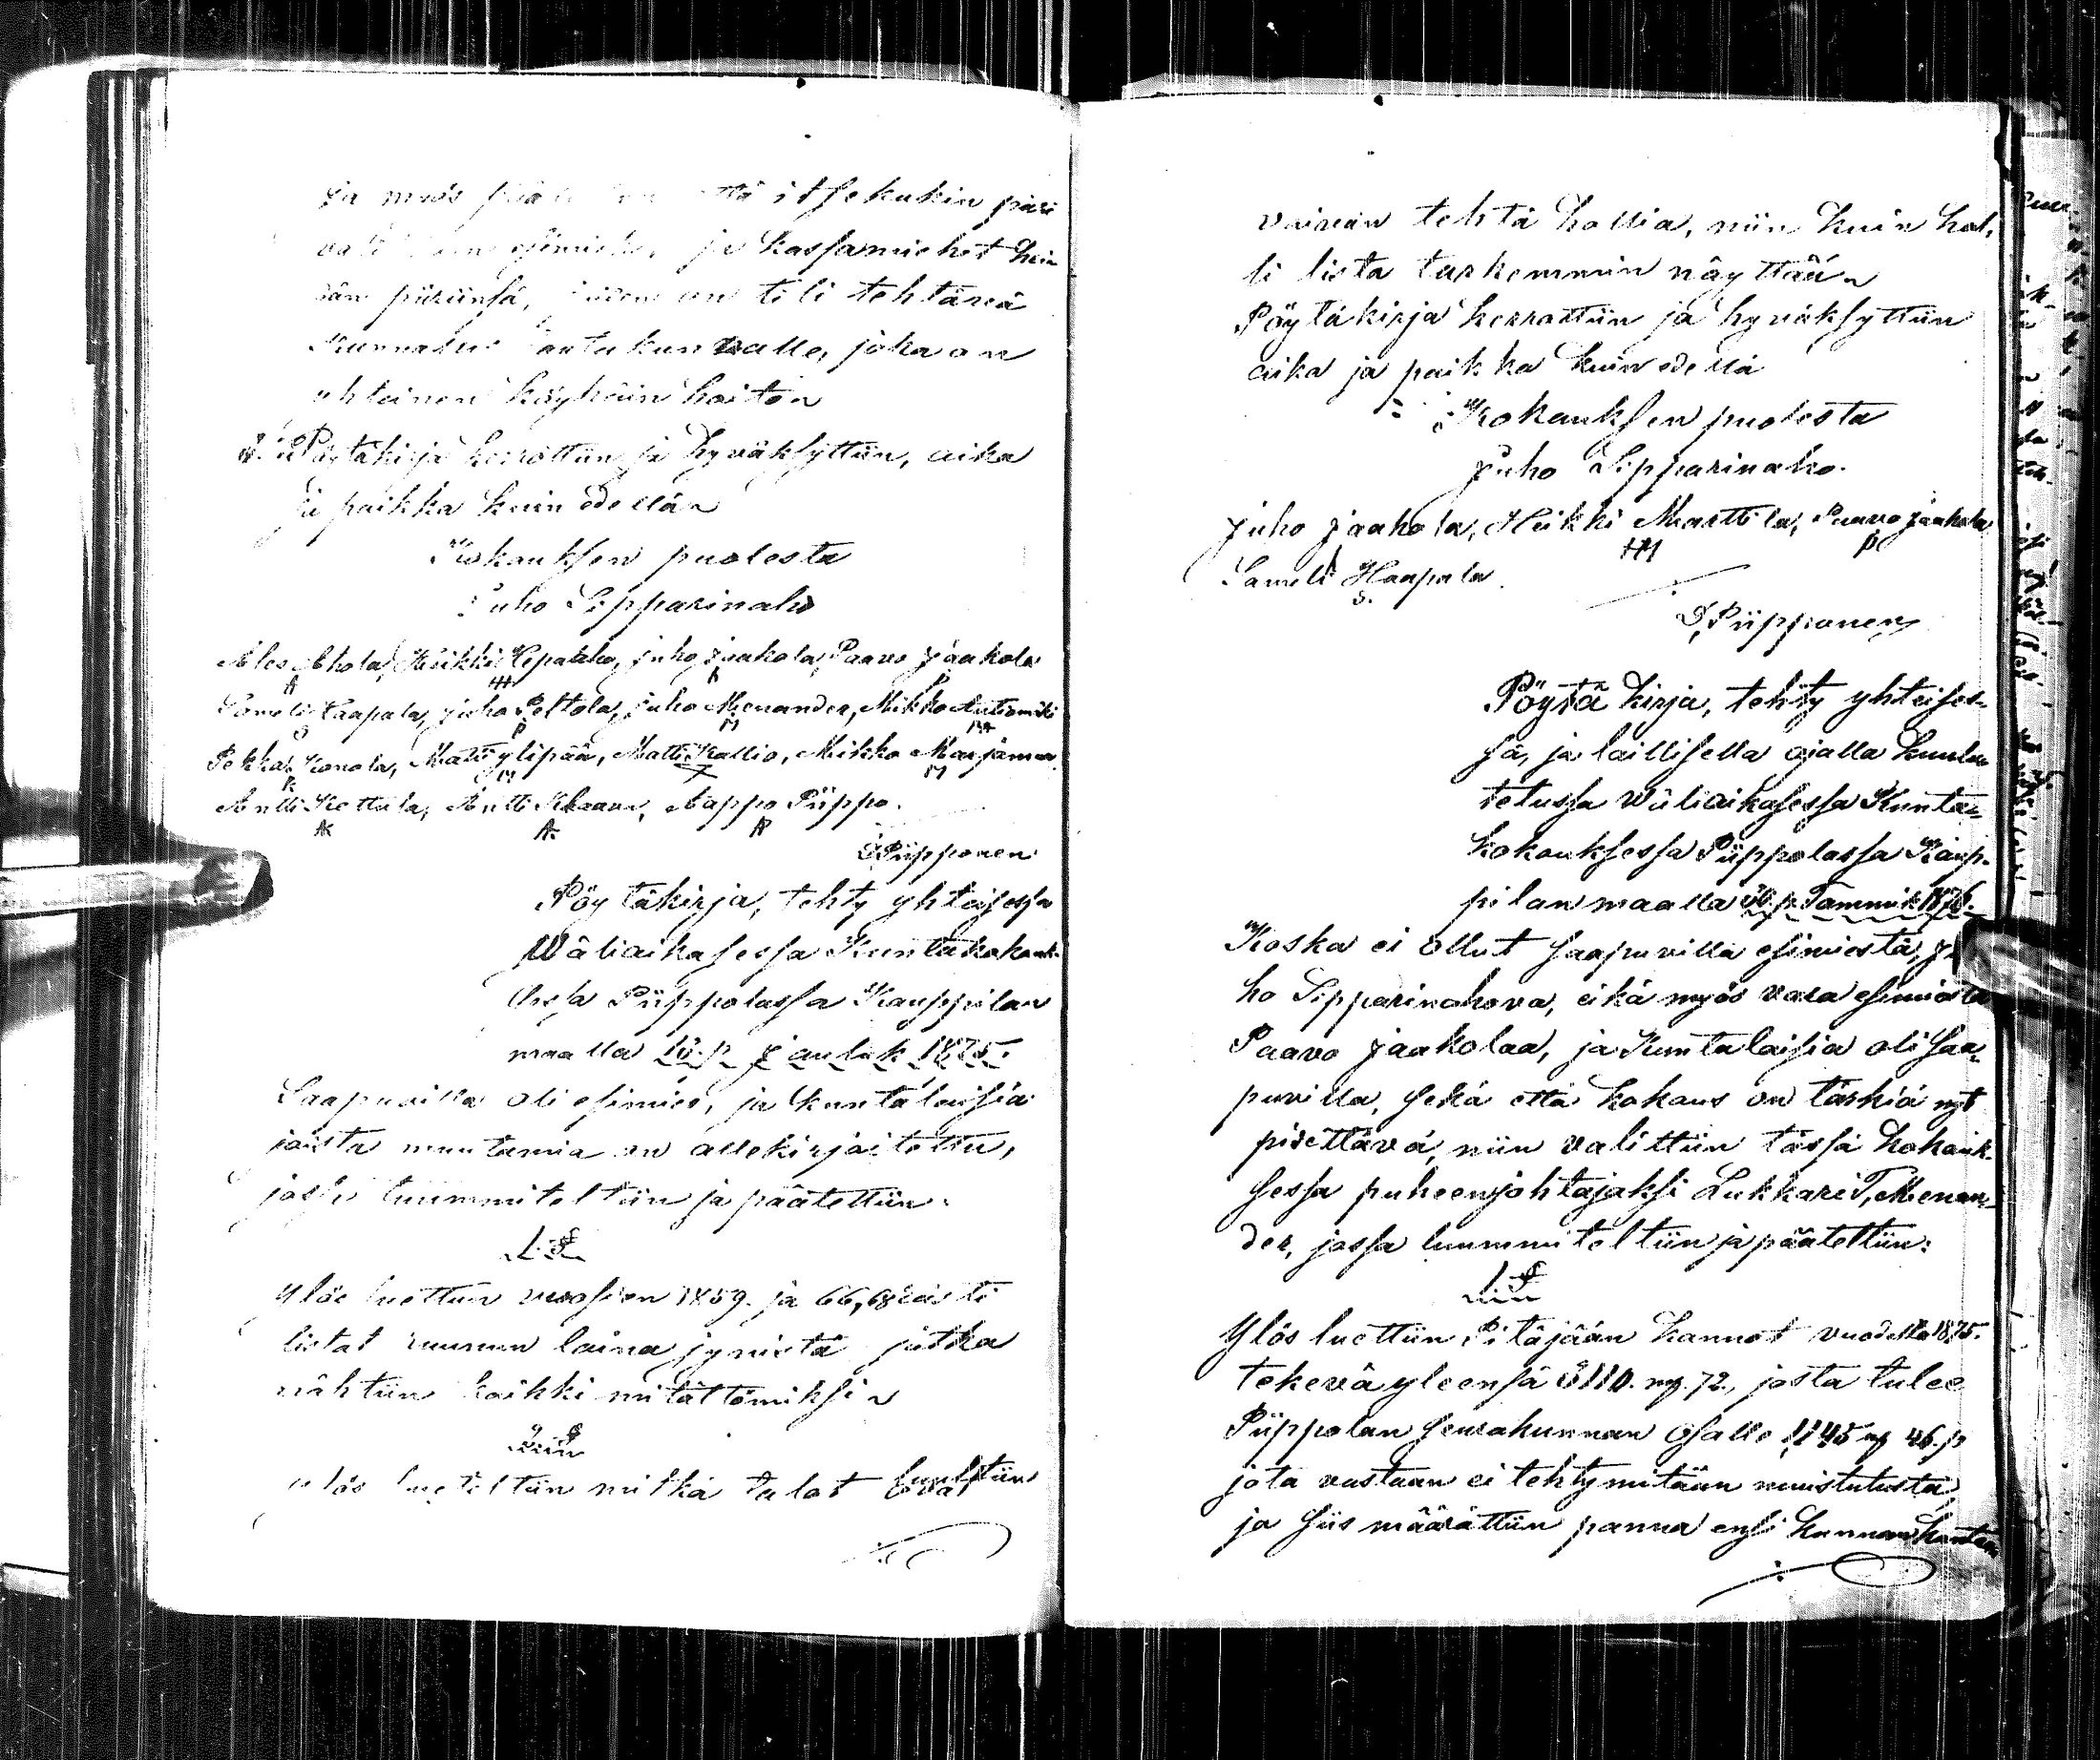 ja myös että itsekukin piiri
esimiehen ja kassamiehet
piiriinsä, on tili tehtävä
Kunnallis lautakunnalle, joka on
yhteinen köyhäin hoiton
Pöytäkirja kerrottiin ja hyväksyttiin, aika
ja paikka kuin edellä
Kokouksen puolesta
Juho Lipparinaho
Ales Ahola, Heikki Lepakko, juho jaakola, Paavo jaakola
A HH P
Sameli Haapala, juho Peltola, juho Menander, Mikko Autiomäki
S P M MA
Pekka Konola, Matti ylipää, Matti Kallio, Mikko Marjamaa
K M M
Antti Kottila, Antti, Aappo Piippo.
AK A. AP
Piipponen
Pöytäkirja, tehty yhteisessa
Wäliaikasessa Kuntakokouk-
sessa Piippolassa Kauppilan
maalla 10. p jouluk 1875.
Saapuvilla oli esimies, ja kuntalaisia
joista muutamia on allekirjoitettu,
jossa tuummiteltiin ja päätettiin:
1. §
Ylös luettiin vuosien 1859. ja 66, 68 rästi
listat ruunun laina jyvistä jotka
nähtiin kaikki mitättömiksi
2. §
ylös lueteltiin mitkä talot
vaivan tehtä hollia, niin kuin hol-
li lista tarkemmin näyttää
Pöytäkirja kerrottiin ja hyväksyttiin
aika ja paikka kuin edellä
Kokouksen puolesta
Juho Lipparinaho.
Juho jaakola, Heikki Marttila, Paavo jaakola
HM P
Sameli Haapala.
S.
Piipponen
Pöytä kirja, tehty yhteises-
sä, ja laillisella ajalla kuulu-
tetussa Wäliaikasessa Kunta-
kokouksessa Piippolassa Kaup-
pilan maalla 30. p. Tammik 1876.
Koska ei ollut saapuvilla esimiestä, Ju
ho Lipparinahova, eikä myös vara esimiestä
Paavo jaakolaa, ja Kuntalaisia oli saa-
puvilla, sekä että kokous on tärkiä nyt
pidettävä, niin valittiin tässä kokouk-
sessa puheenjohtajaksi Lukkari T, Menan-
der, jossa tuummiteltiin ja päätettiin:
1. §
Ylös luettiin Pitäjään kannot vuodelta 1875.
tekevä yleensä 3110. mg. 72., josta tulee
Piippolan seurakunnan osalle 1145 mg 46. p
jota vastaan ei tehty mitään muistutusta,
ja siis määrättiin panna ensi kunnan